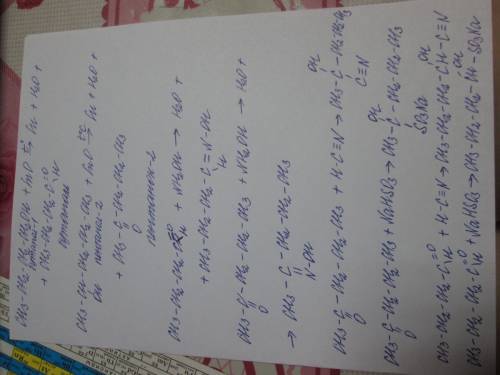 CH3-CH2-CH2-CH2OH + CuO t°→ Cu + H2O +
бутанол-1
+ CH3-CH2-CH2-C=O
H
бутаналь
CH3-CH-CH2-CH2-CH3 + CuO t°C→ Cu + H2O +
OH пентанол-2
+ CH3-C-CH2-CH2-CH3
O
пентанон-2
CH3-CH2-CH2-C=O + NH2OH → H2O +
H
+ CH3-CH2-CH2-C=N-OH
H
CH3-C-CH2-CH2-CH3 + NH2OH → H2O +
O
→ CH3-C-CH2-CH2-CH3
N-OH
OH
CH3-C-CH2-CH2-CH3 + H-C≡N → CH3-C-CH2CH2CH3
O C≡N
OH
CH3-C-CH2-CH2-CH3 + NaHSO3 → CH3-C-CH2-CH2-CH3
O SO3Na
OH
CH3-CH2-CH2-C=O + H-C≡N → CH3-CH2-CH2-CH-C≡N
H
OH
CH3-CH2-CH2-C=O + NaHSO3 → CH3-CH2-CH2-CH-SO3Na
H